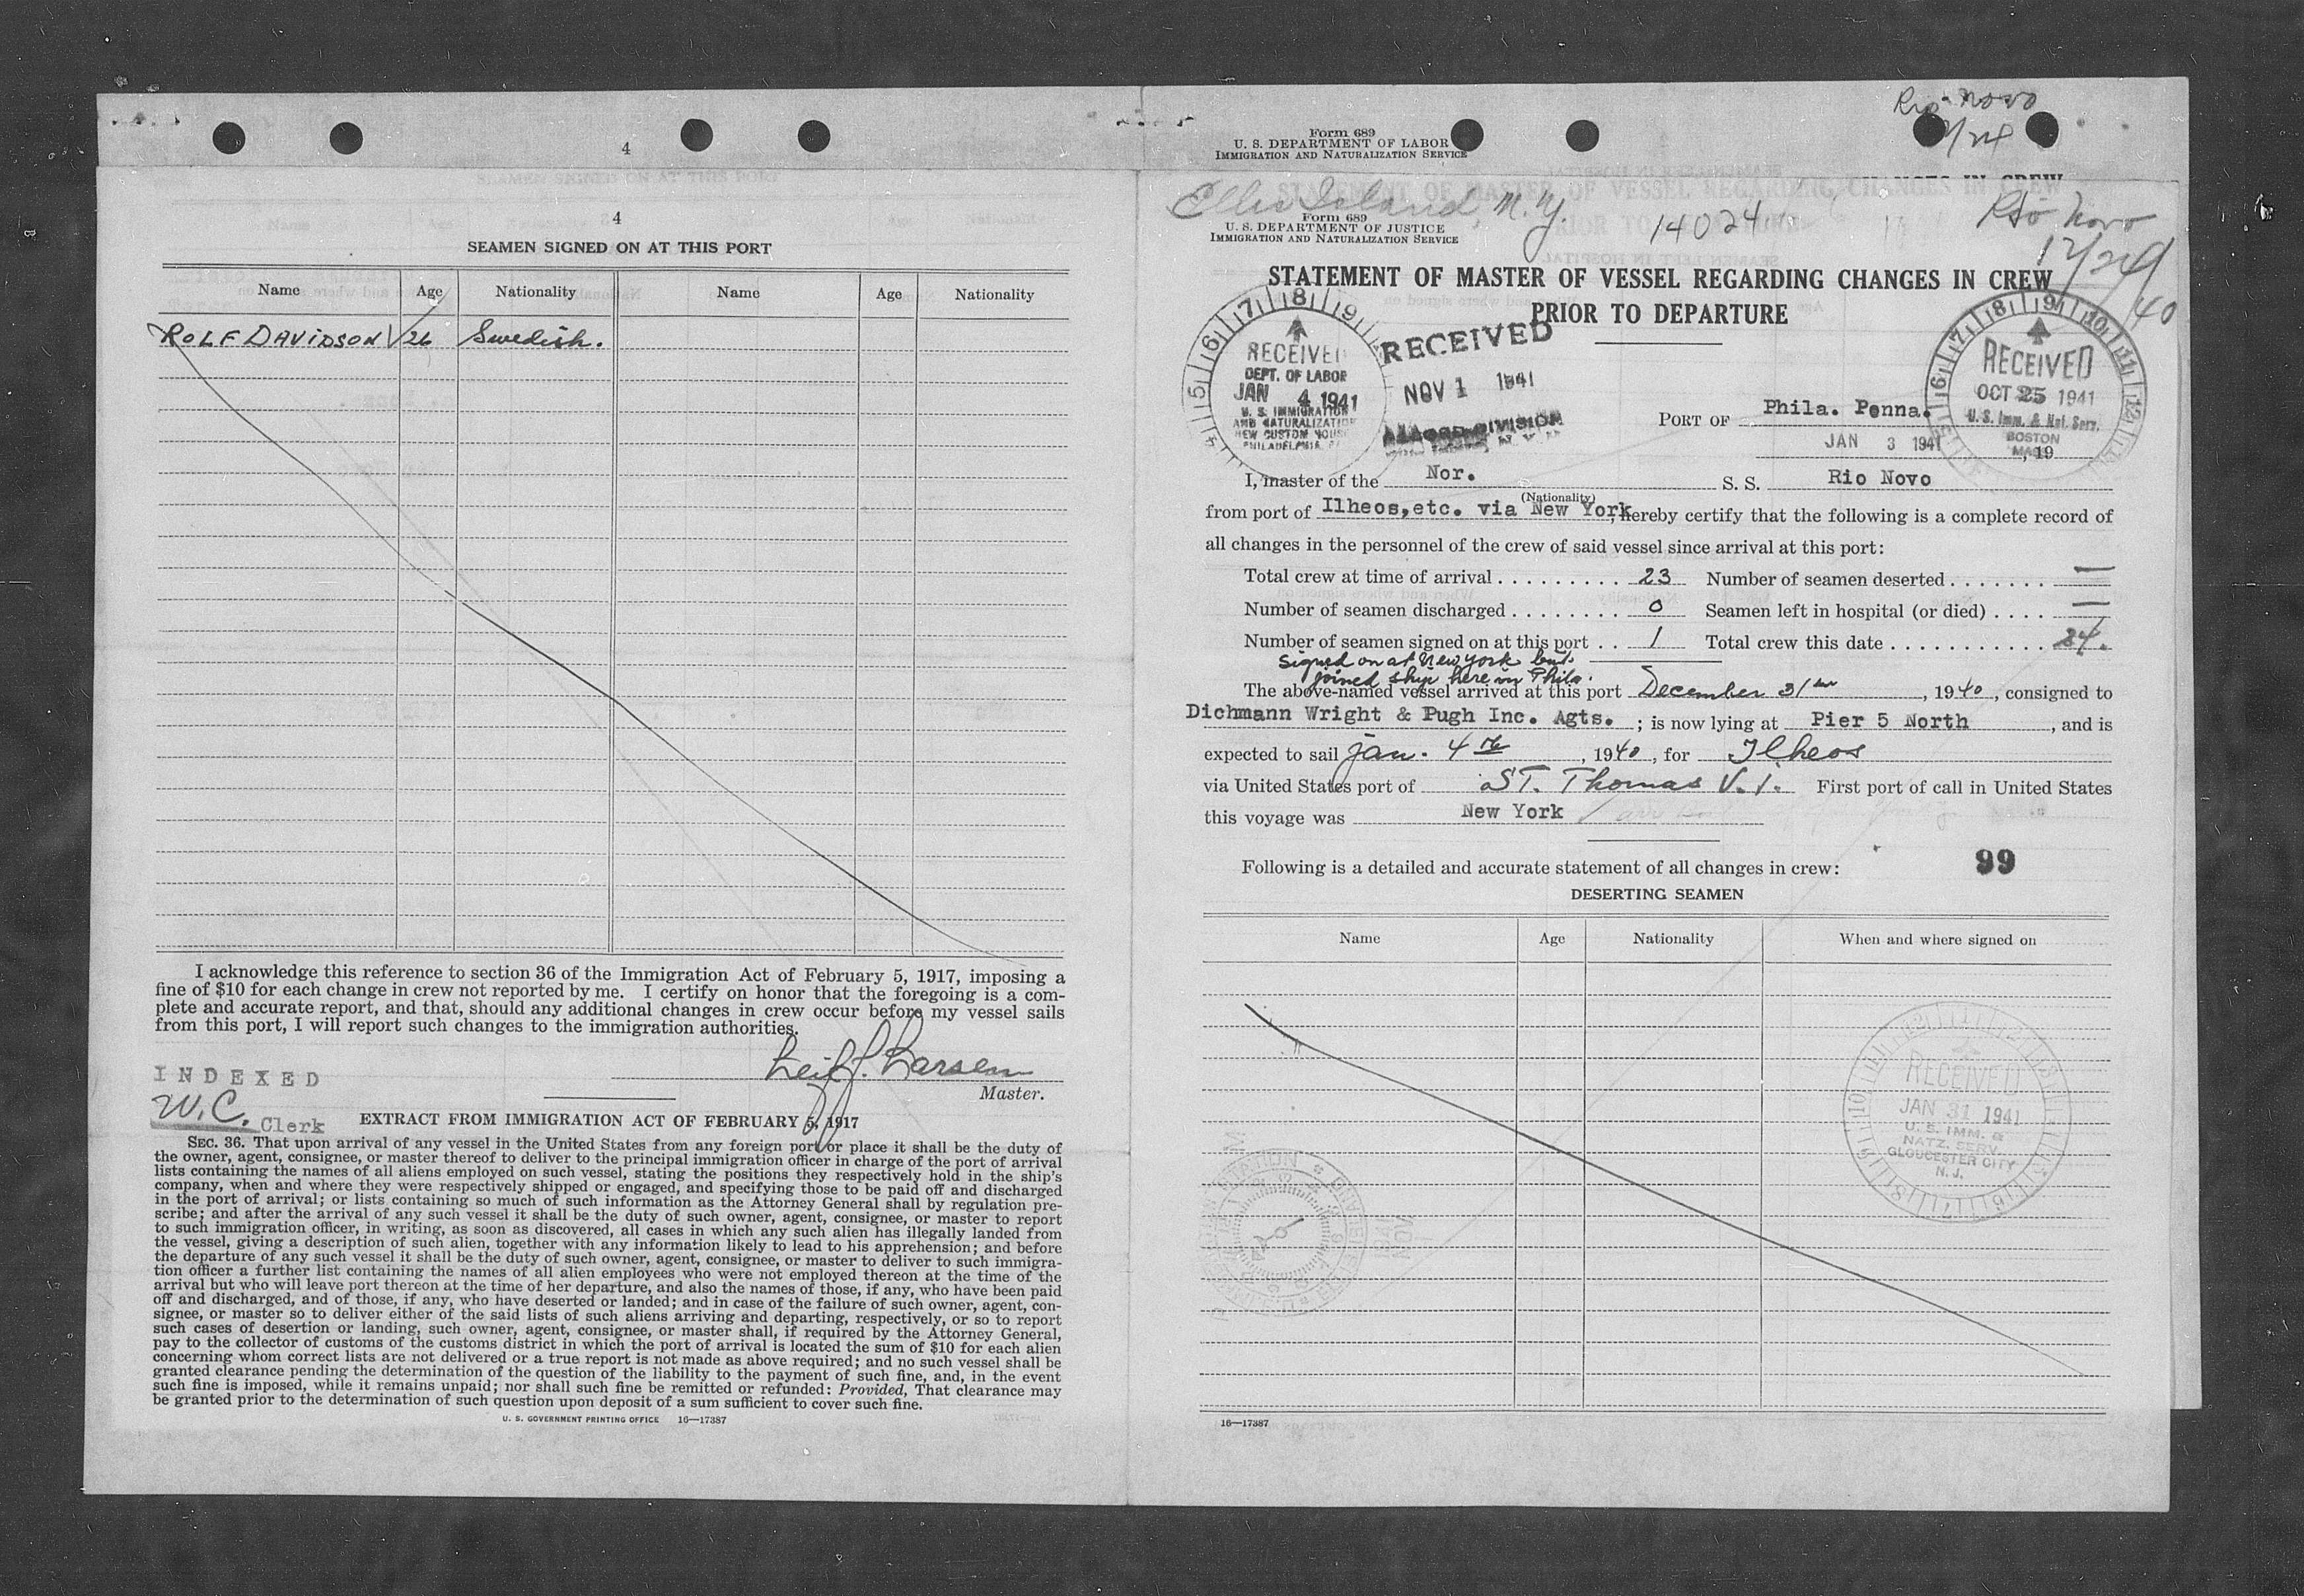 4
4
SEAMEN SIGNED ON AT THIS PORT
Name Age Nationality Name Age Nationality
ROLF DAVIDSON 26 Swedish.
I acknowledge this reference to section 36 of the Immigration Act of February 5, 1917, imposing a
fine of $10 for each change in crew not reported by me. I certify on honor that the foregoing is a com-
plete and accurate report, and that, should any additional changes in crew occur before my vessel sails
from this port, I will report such changes to the immigration authorities.
Leif J. Larsen
Master.
INDEXED
W.C. Clerk
EXTRACT FROM IMMIGRATION ACT OF FEBRUARY 5, 1917
SEC. 36. That upon arrival of any vessel in the United States from any foreign port or place it shall be the duty of
the owner, agent, consignee, or master thereof to deliver to the principal immigration officer in charge of the port of arrival
lists containing the names of all aliens employed on such vessel, stating the positions they respectively hold in the ship's
company, when and where they were respectively shipped or engaged, and specifying those to be paid off and discharged
in the port of arrival; or lists containing so much of such information as the Attorney General shall by regulation pre-
scribe; and after the arrival of any such vessel it shall be the duty of such owner, agent, consignee, or master to report
to such immigration officer, in writing, as soon as discovered, all cases in which any such alien has illegally landed from
the vessel, giving a description of such alien, together with any information likely to lead to his apprehension; and before
the departure of any such vessel it shall be the duty of such owner, agent, consignee, or master to deliver to such immigra-
tion officer a further list containing the names of all alien employees who were not employed thereon at the time of the
arrival but who will leave port thereon at the time of her departure, and also the names of those, if any, who have been paid
off and discharged, and of those, if any, who have deserted or landed; and in case of the failure of such owner, agent, con-
signee, or master so to deliver either of the said lists of such aliens arriving and departing, respectively, or so to report
such cases of desertion or landing, such owner, agent, consignee, or master shall, if required by the Attorney General,
pay to the collector of customs of the customs district in which the port of arrival is located the sum of $10 for each alien
concerning whom correct lists are not delivered or a true report is not made as above required; and no such vessel shall be
granted clearance pending the determination of the question of the liability to the payment of such fine, and, in the event
such fine is imposed, while it remains unpaid; nor shall such fine be remitted or refunded: Provided, That clearance may
be granted prior to the determination of such question upon deposit of a sum sufficient to cover such fine.
U. S. GOVERNMENT PRINTING OFFICE 16—17387
Form 689
U. S. DEPARTMENT OF LABOR
IMMIGRATION AND NATURALIZATION SERVICE
Rio Novo
Ellis Island, N.Y.
14024
Rio Novo
12/24/40
Form 689
U. S. DEPARTMENT OF JUSTICE
IMMIGRATION AND NATURALIZATION SERVICE
STATEMENT OF MASTER OF VESSEL REGARDING CHANGES IN CREW
PRIOR TO DEPARTURE
RECEIVED
DEPT. OF LABOR
JAN 4 1941
U. S. IMMIGRATION
AND NATURALIZATION
NEW CUSTOM HOUSE
PHILADELPHIA, PA
RECEIVED
NOV 1 1941
RECEIVED
OCT 25 1941
U. S. Imm. & Nat. Serv.
BOSTON
MASS.
PORT OF Phila. Penna.
JAN 3 1941, 19
I, master of the Nor. S. S. Rio Novo
(Nationality)
from port of Ilheos,etc. via New York, hereby certify that the following is a complete record of
all changes in the personnel of the crew of said vessel since arrival at this port:
Total crew at time of arrival . . . . . . . . . 23 Number of seamen deserted . . . . . . . —
Number of seamen discharged . . . . . . . . 0 Seamen left in hospital (or died) . . . . —
Number of seamen signed on at this port . . 1 Total crew this date . . . . . . . . . . . 24.
Signed on at New York but
joined ship here in Phila.
The above-named vessel arrived at this port December 31st, 1940, consigned to
Dichmann Wright & Pugh Inc. Agts. ; is now lying at Pier 5 North, and is
expected to sail Jan. 4th, 1940, for Ilheos
via United States port of ST. Thomas V.I. First port of call in United States
this voyage was New York
Following is a detailed and accurate statement of all changes in crew:
99
DESERTING SEAMEN
Name Age Nationality When and where signed on
RECEIVED
JAN 31 1941
U. S. IMM. &
NATZ. SERV.
GLOUCESTER CITY
N. J.
16—17387